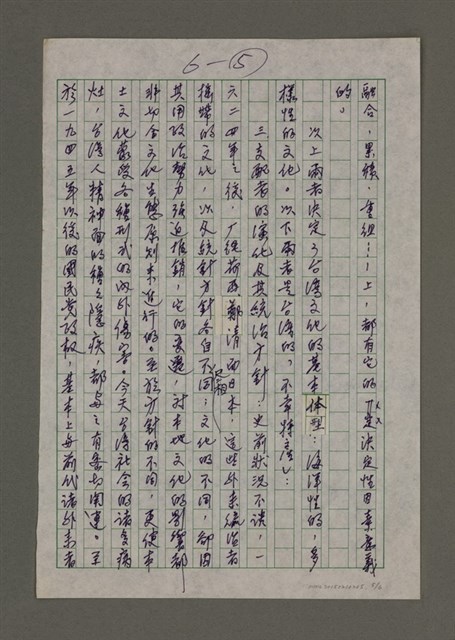 6-⑤
融合,累積,重組……上,都有它的決定性因素意義
的。
次上兩者決定了台湾文化的基本体型:海洋性的,多
樣性的文化。次下兩者是台湾的,不幸特產:
三支配者的演化及其統治方針:史前狀況不談,一
六二四年之後,歷經荷西鄭清而日本,這些外來統治者
攜帶的文化,次及統針方針各自不盡相同;文化的不同,卻因
其用政治勢力強迫推銷,它的變遷,對本地文化的影響都
非切合文化生態原則來進行的。至於方針的不同,更使本
土文化蒙受各種形式的內外傷害。今天台湾社会的諸多病
灶,台湾人精神面的種種隱疾,都與之有密切関連。至
於一九四五年次後的國民党政权,基本上與前代諸外来者